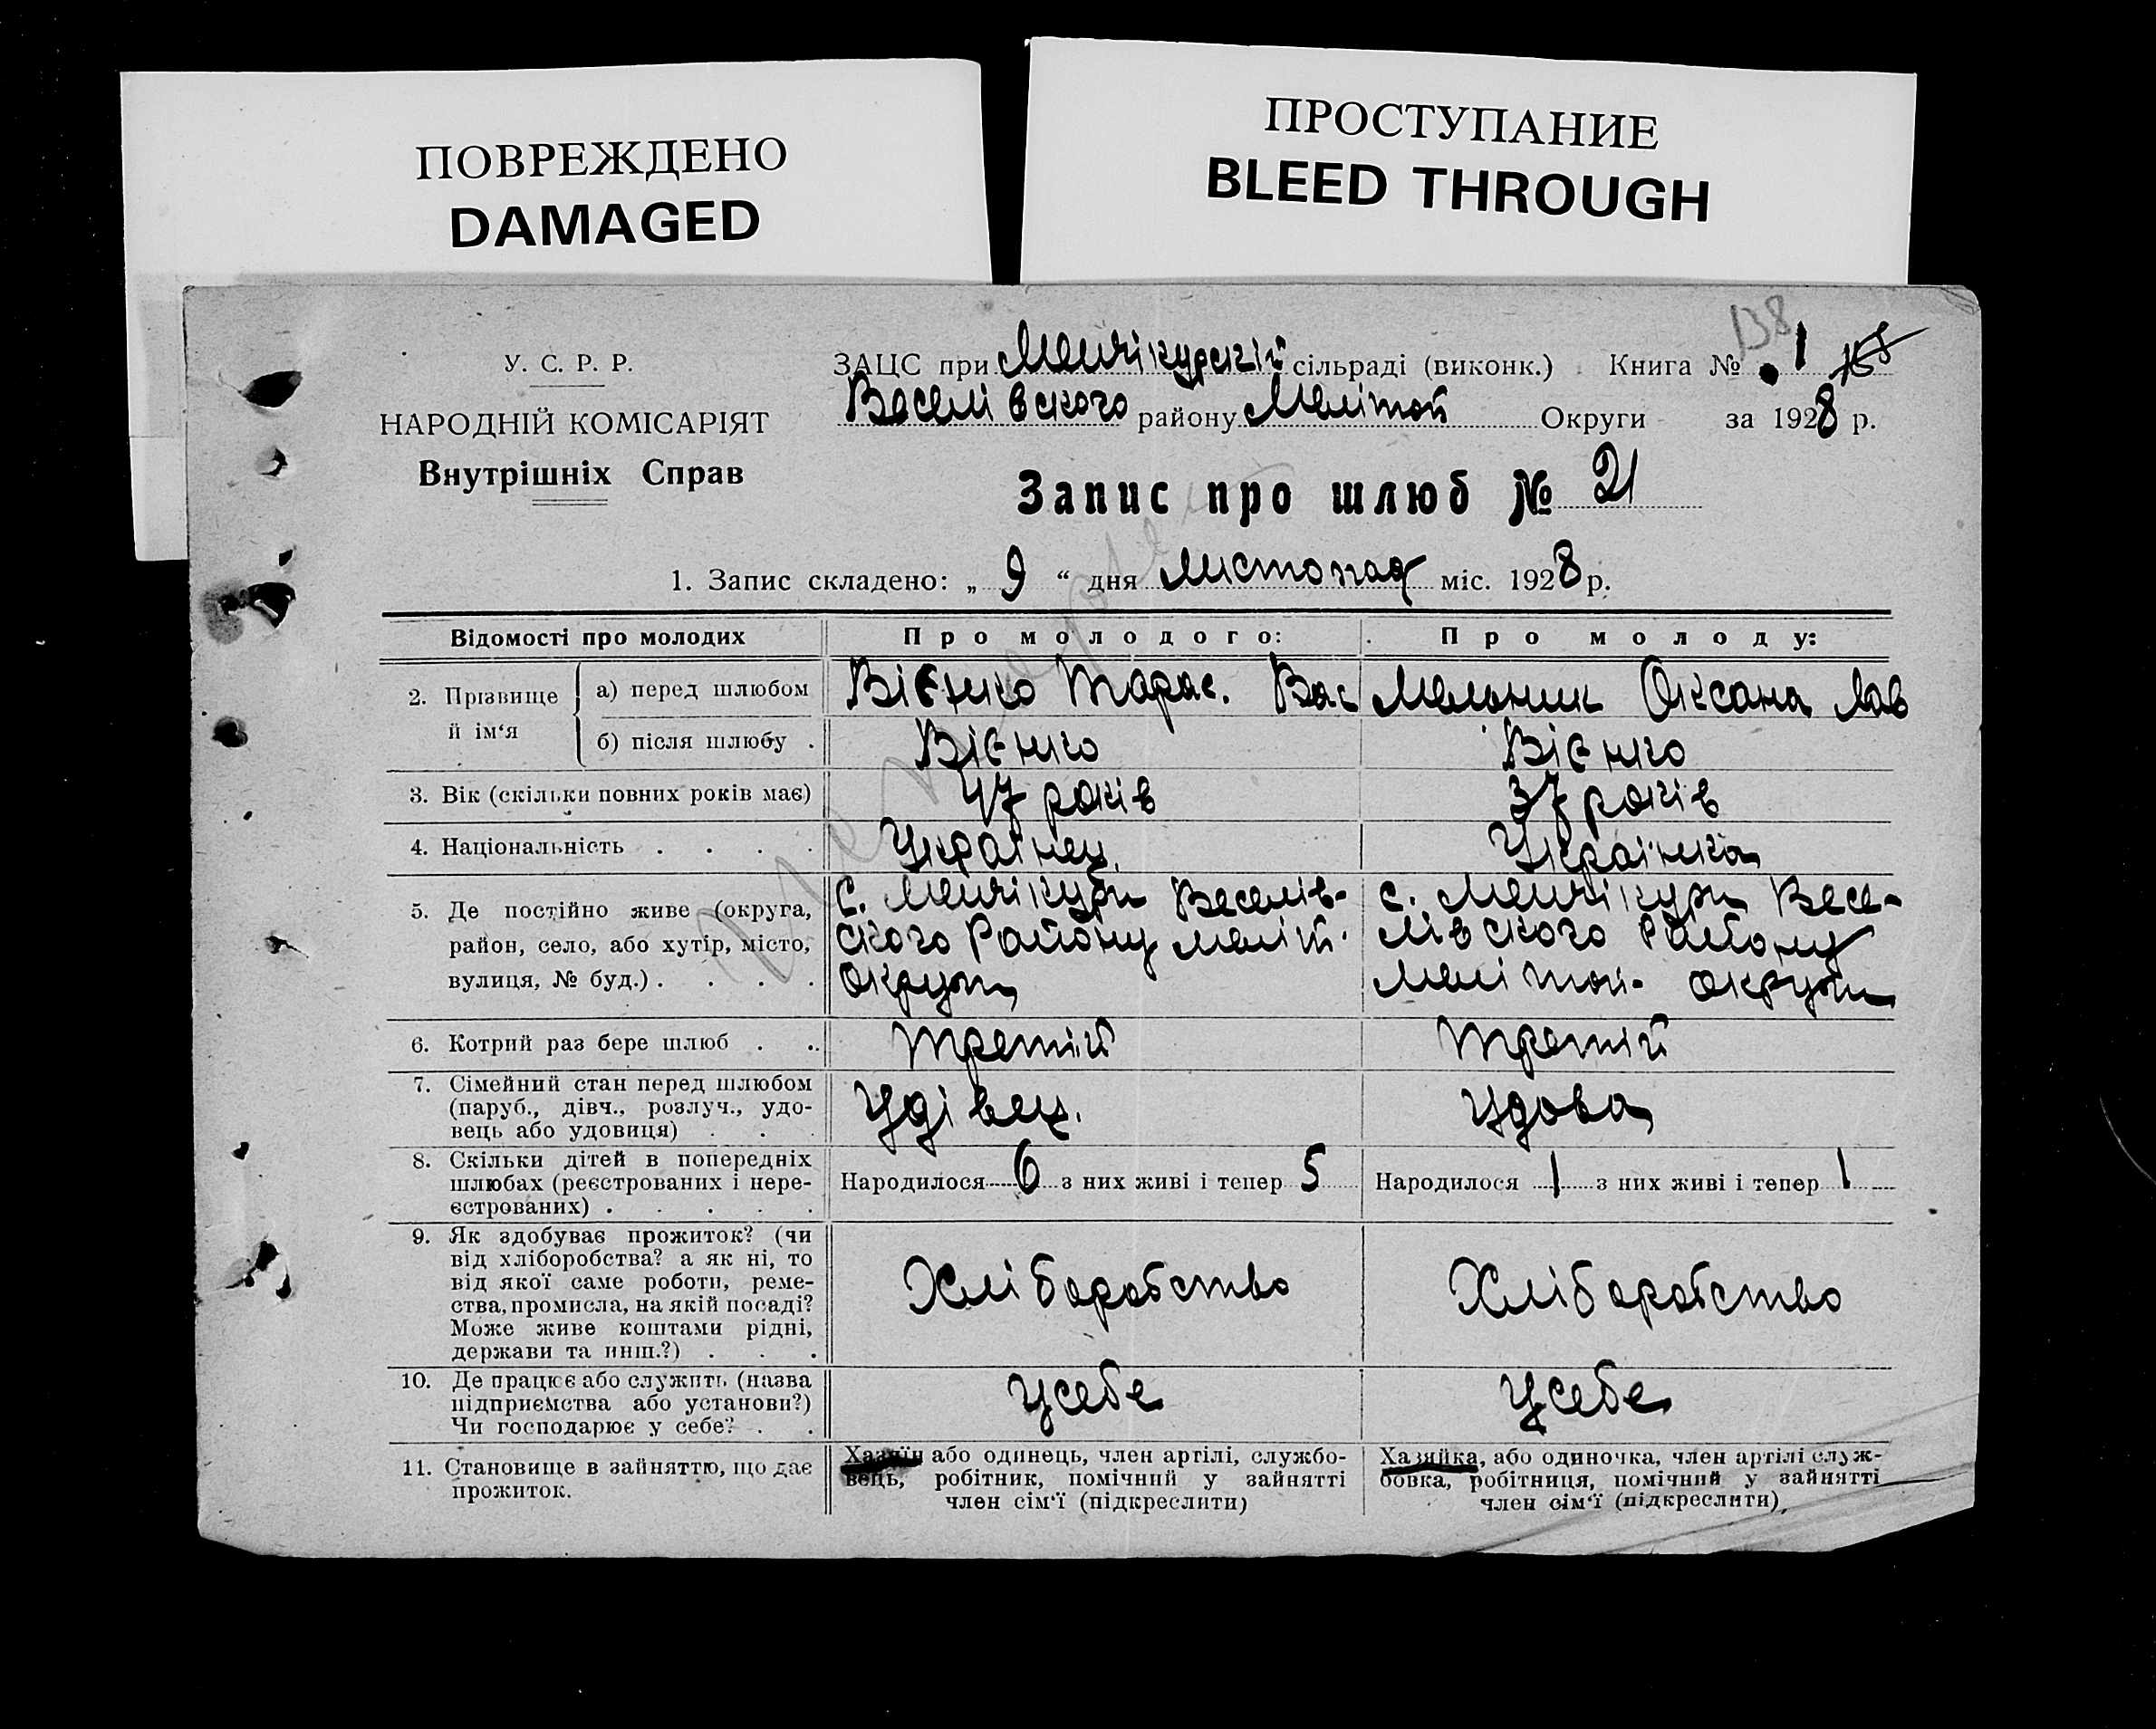 ПОВРЕЖДЕНО
DAMAGED
ПРОСТУПАНИЕ
BLEED THROUGH
138
У. С. Р. Р.
НАРОДНІЙ КОМІСАРІЯТ
Внутрішніх Справ
ЗАЦС при Менчікурскій сільраді (виконк.) Книга № 1
Веселівского району Меліто́п Округи за 1928 р.
Запис про шлюб № 21
1. Запис складено: „ 9 “ дня листопад міс. 1928 р.
Відомості про молодих Про молодого: Про молоду:
2. Прізвище й ім‘я а) перед шлюбом Вієнко Тарас. Вас Мельник Оксана Лав
б) після шлюбу . Вієнко Вієнко
3. Вік (скільки повних років має) 47 років 37 років
4. Національність . . . . Українец. Українка
5. Де постійно живе (округа, с. Менчікури Веселів- с. Менчікури Весе-
район, село, або хутір, місто, ского Району меліт. лівского Району
вулиця, № буд.) . . . . округи Мелітоп. округи
6. Котрий раз бере шлюб . .. третій третій
7. Сімейний стан перед шлюбом
(паруб., дівч., розлуч., удо-
вець або удовиця) . . . Удівец. Удова
8. Скільки дітей в попередніх
шлюбах (реєстрованих і нере-
єстрованих) . . . . . Народилося 6 з них живі і тепер 5 Народилося 1 з них живі і тепер 1
9. Як здобуває прожиток? (чи
від хліборобства? а як ні, то
від якої саме роботи, реме-
ства, промисла, на якій посаді? Хліборобство Хліборобство
Може живе коштами рідні,
держави та инш.?) . . .
10. Де працює або служить (назва
підприємства або установи?) усебе усебе
Чи господарює у себе? . .
11. Становище в зайняттю, що дає
прожиток.
Хазяїн або одинець, член артілі, службо-
вець, робітник, помічний у зайнятті
член сім‘ї (підкреслити)
Хазяйка, або одиночка, член артілі служ-
бовка, робітниця, помічний у зайнятті
член сім‘ї (підкреслити)